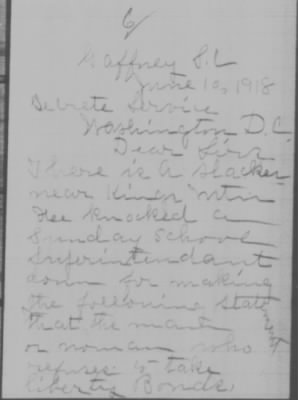 6/
Gaffney S.C
June 10, 1918
Secrete Service
Washington D.C.
Dear Sirs
There is a slacker
near Kings Mtn
Hee knocked a
Sunday School
Superintendant
down for making
the following state
that the man
or woman who
refuses to take
liberty Bonds